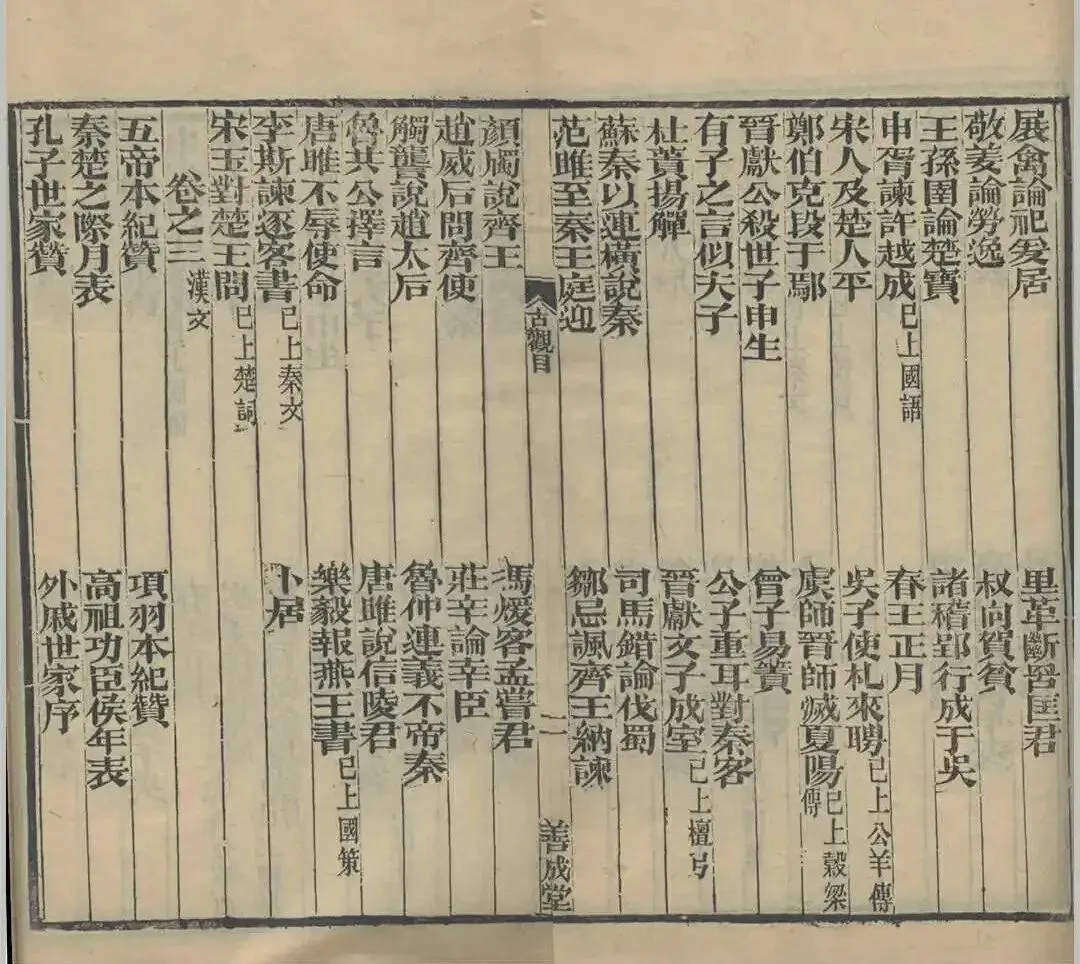 展禽論祀爰居　里革斷罟匡君
敬姜論勞逸　叔向賀貧
王孫圉論楚寶　諸稽郢行成于吳
申胥諫許越成已上國語　春王正月
宋人及楚人平　吳子使札來聘已上公羊傳
鄭伯克段于鄢　虞師晉師滅夏陽已上穀梁傳
晉獻公殺世子申生　曾子易簀
有子之言似夫子　公子重耳對秦客
杜蕢揚觶　晉獻文子成室已上檀弓
蘇秦以連橫說秦　司馬錯論伐蜀
范雎至秦王庭迎　鄒忌諷齊王納諫
古觀目　二　善成堂
顏斶說齊王　馮煖客孟嘗君
趙威后問齊使　莊辛論幸臣
觸讋說趙太后　魯仲連義不帝秦
魯共公擇言　唐雎說信陵君
唐雎不辱使命　樂毅報燕王書已上國策
李斯諫逐客書已上秦文　卜居
宋玉對楚王問已上楚詞
卷之三　漢文
五帝本紀贊　項羽本紀贊
秦楚之際月表　高祖功臣侯年表
孔子世家贊　外戚世家序